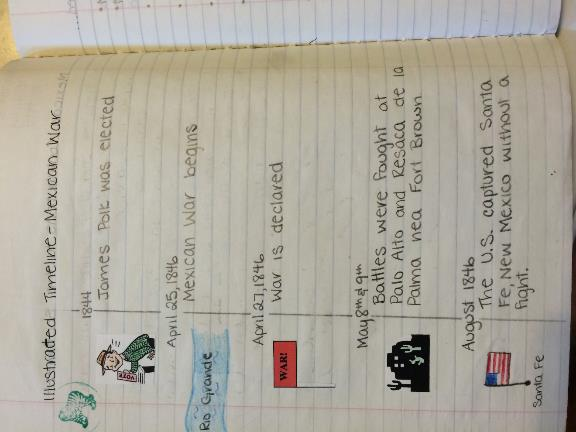 Illustrated Timeline - Mexican War
1844
James Polk was elected
VOTE
April 25, 1846
Mexican War begins
Rio Grande
April 27, 1846
War is declared
WAR!
May 8th & 9th
Battles were fought at
Palo Alto and Resaca de la
Palma nea Fort Brown
August 1846
The U.S. captured Santa
Fe, New Mexico without a
fight.
Santa Fe